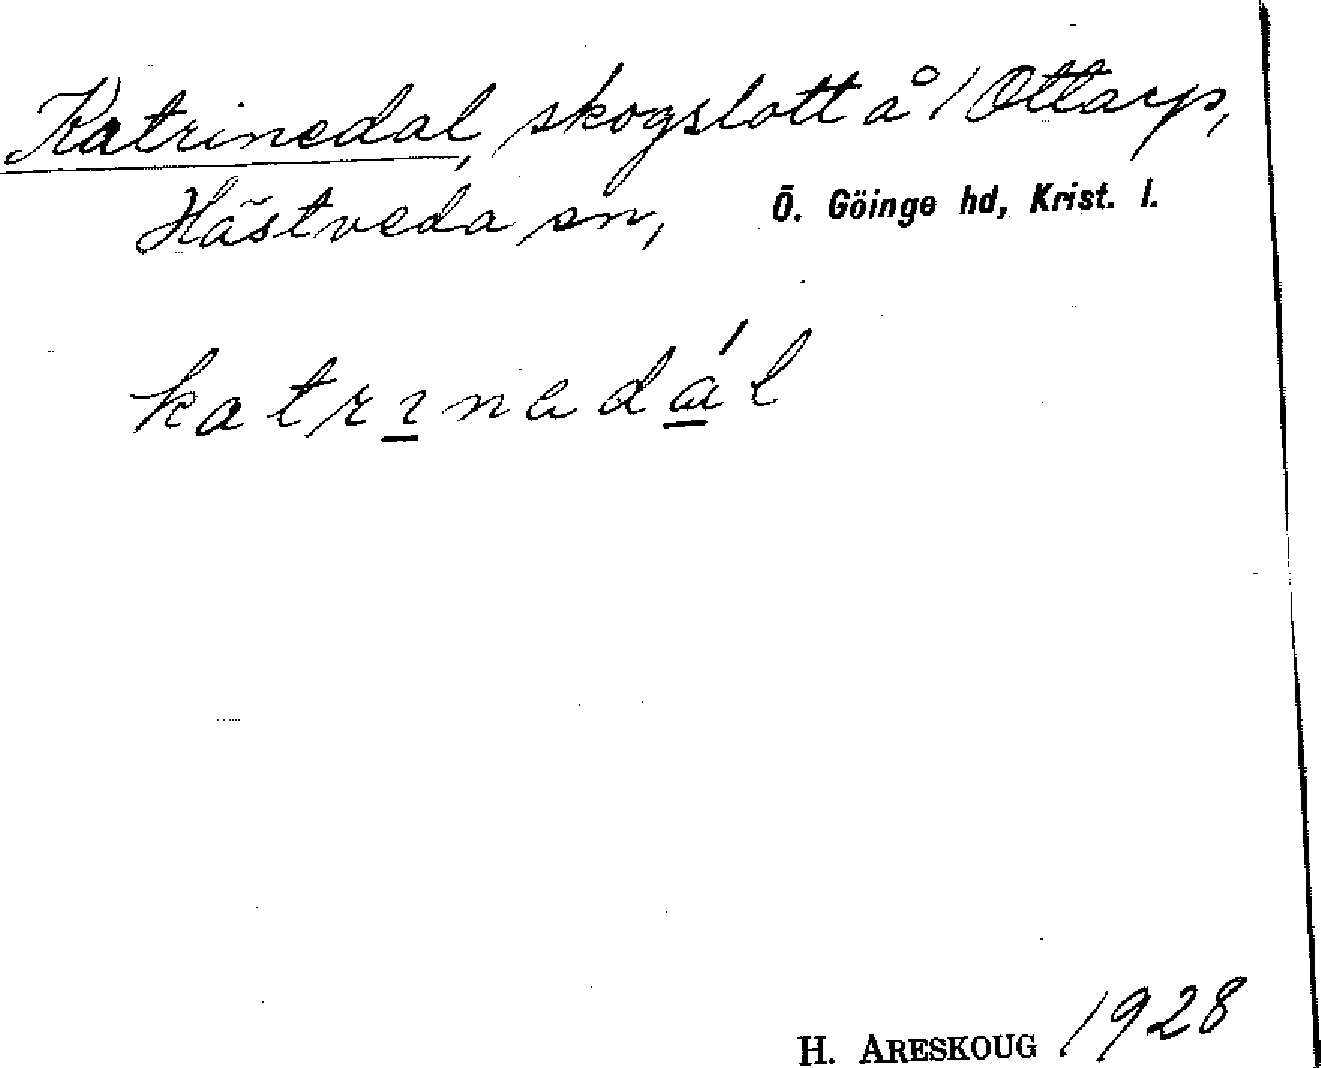 Katrinedal, skogslott å 1 Ottarp,
Hästveda sn, Ö. Göinge hd, Krist. l.
katrɪnadál
H. ARESKOUG 1928